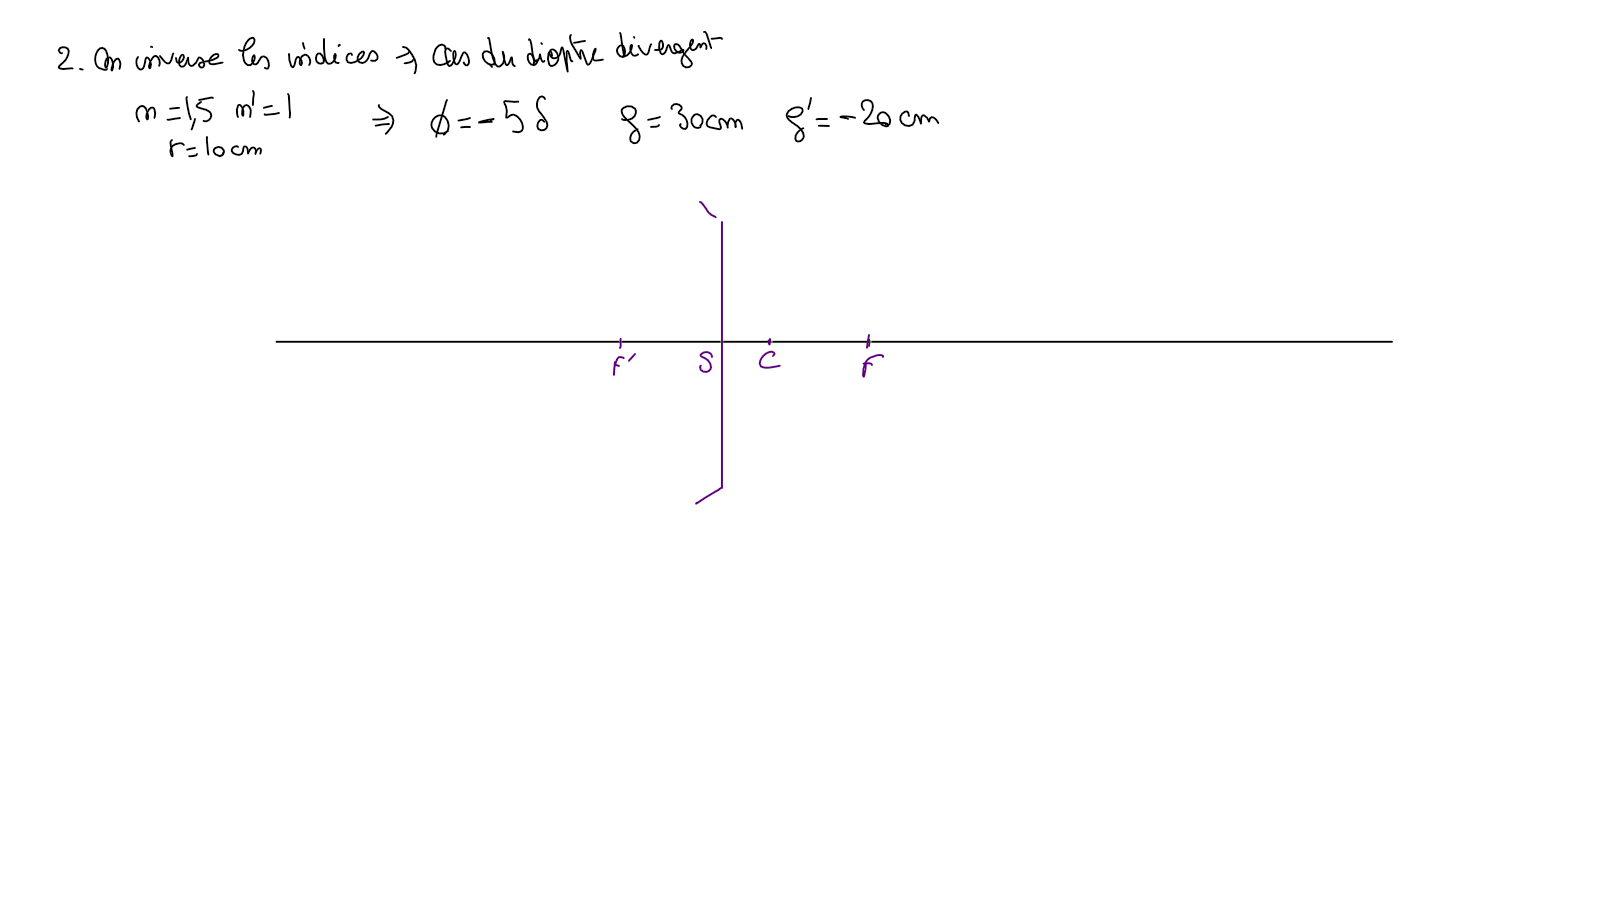 2. On inverse les indices ⇒ Cas du dioptre divergent
n = 1,5 n' = 1 ⇒ ϕ = - 5 δ f = 30 cm f' = - 20 cm
r = 10 cm
F' S C F